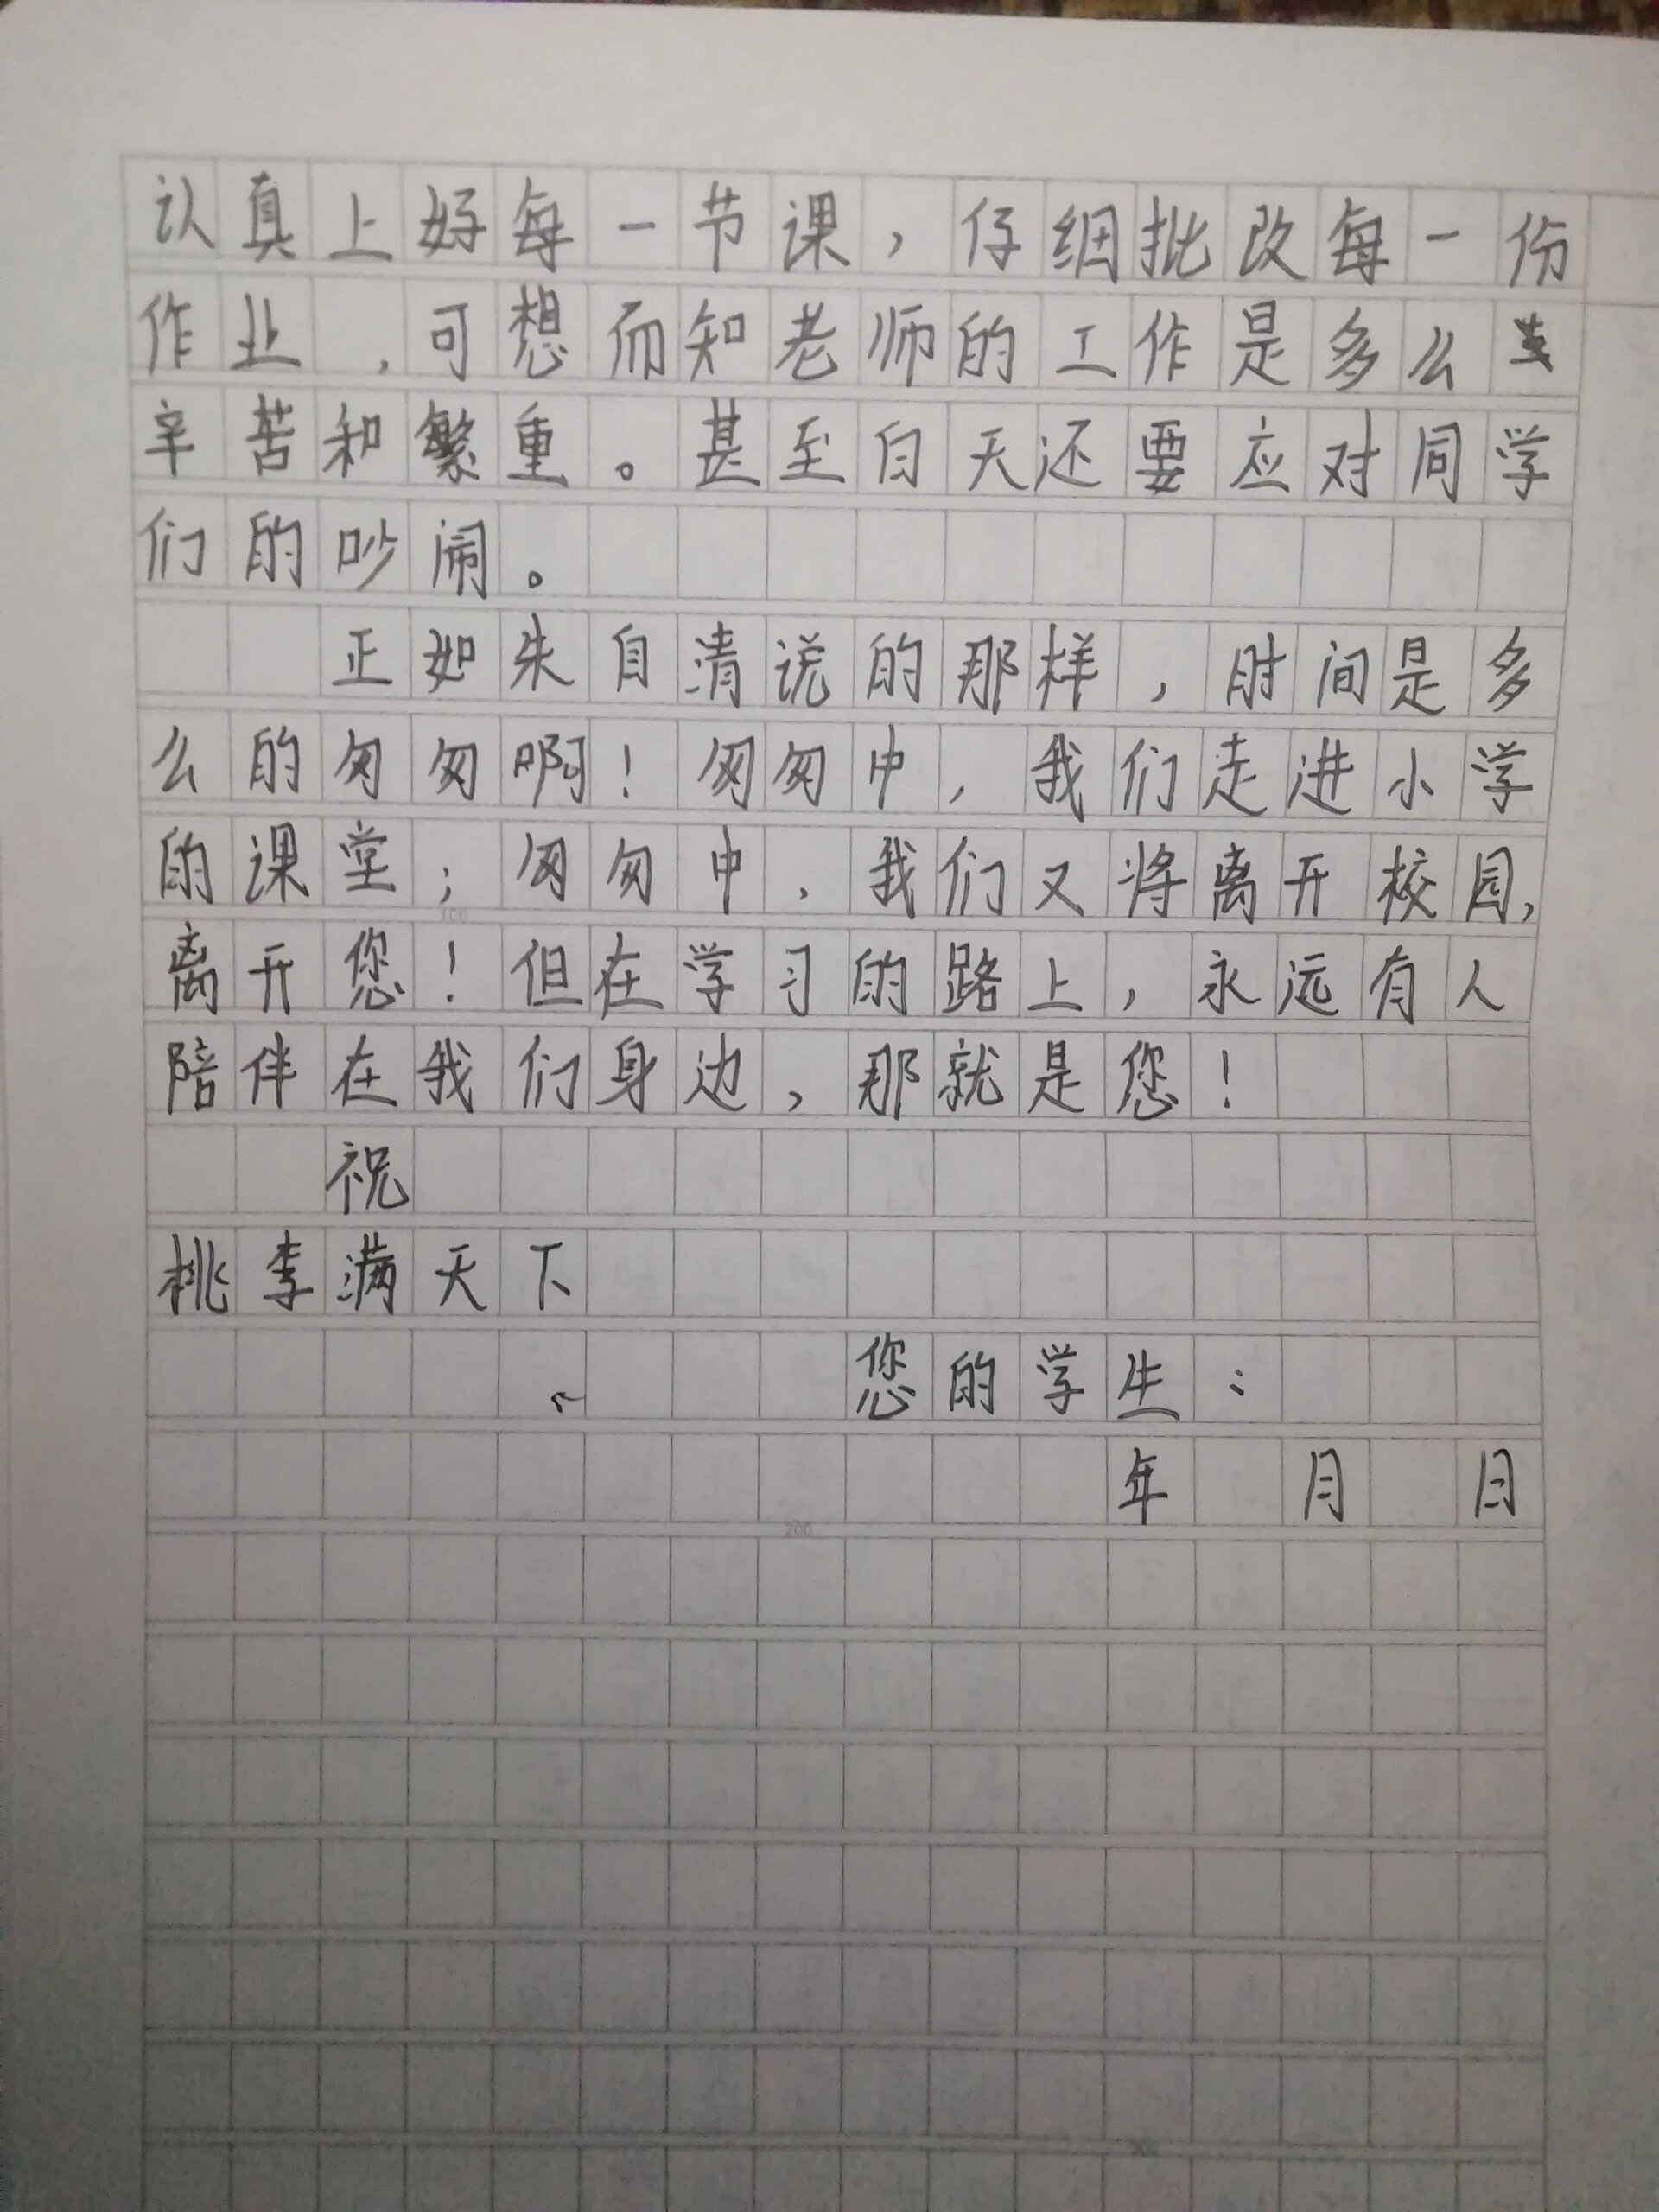 认真上好每一节课，仔细批改每一份
作业，可想而知老师的工作是多么
辛苦和繁重。甚至白天还要应对同学
们的吵闹。
正如朱自清说的那样，时间是多
么的匆匆啊！匆匆中，我们走进小学
的课堂；匆匆中，我们又将离开校园，
100
离开您！但在学习的路上，永远有人
陪伴在我们身边，那就是您！
祝
桃李满天下
您的学生：
年 月 日
200